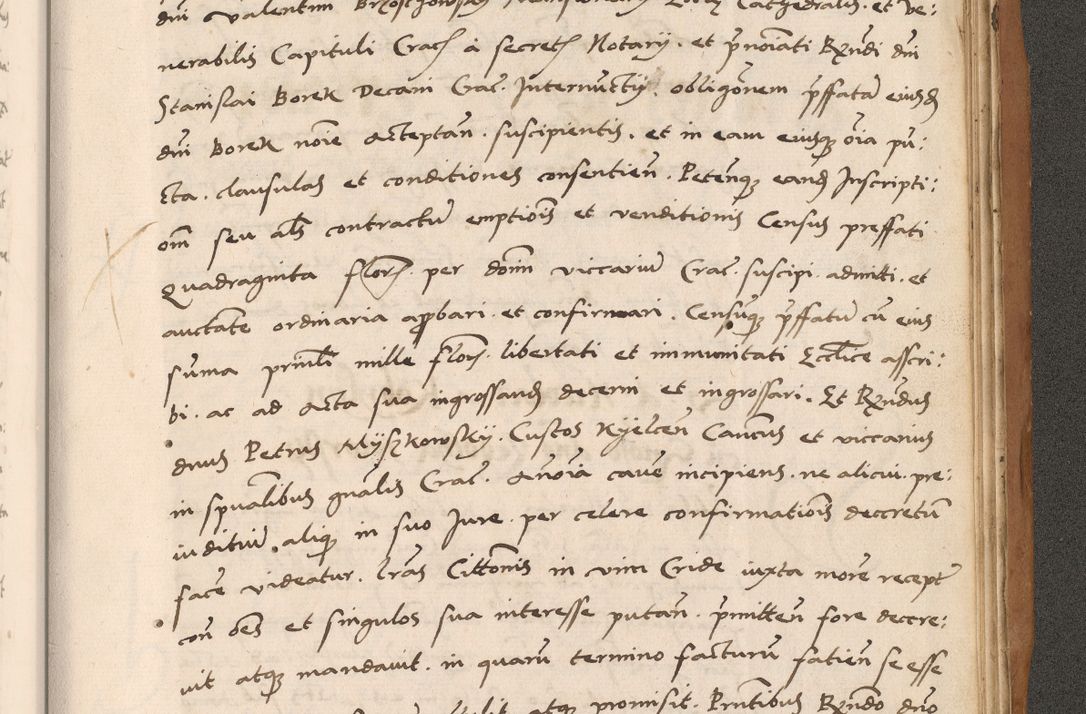 dni Valentini Brzostowsky
nerabilis Capituli Crac̃ à secret̃ Notarÿ . et p̃noĩati R̃ndi dni
Stanislai Borek Decani Crac̃ . Internuctÿ . obligõnem p̃ffatã eiusd̃
dni Borek noĩe Acceptañ . suscipientis . et in eam eiusq̃ õia pu:
cta . clausulas et conditiones consentieñ . Peteñq̃ eand̃ Inscripti:
om̃ seu al̃s contractũ emptiõis et venditionis Census preffati
Quadraginta flor̃ . per dom̃ viccariũ Crac̃ . suscipi . admitti . et
auctate ordinaria apr̃bari . et confirmari . Censũq̃ p̃ffatũ cũ eius
sũma prinl̃i mille flor̃ . libertati et immunitati Eccl̃ice asscri:
bi . ac ad Acta sua ingrossand̃ decerni et ingrossari . Et R̃ndus
dnus Petrus Myszkowsky . Custos Kyelceñ Cañcus et viccarius
in spualibus gñalis Crac̃ . Añoia cave incipiens . ne alicui . pre:
iuditiũ . aliq̃ in suo Jure . per celere confirmatiõis decretũ
face videatur . Lr̃as Cittõnis in vim Cride iuxta morẽ recept̃
coñ oẽs et singulos sua interesse putañ . p̃mitteñ fore decre:
vit atq̃ mandavit . in quarũ termino facturũ fatieñ se esse
atq̃ promisit . Pñtibus R̃ndo dño